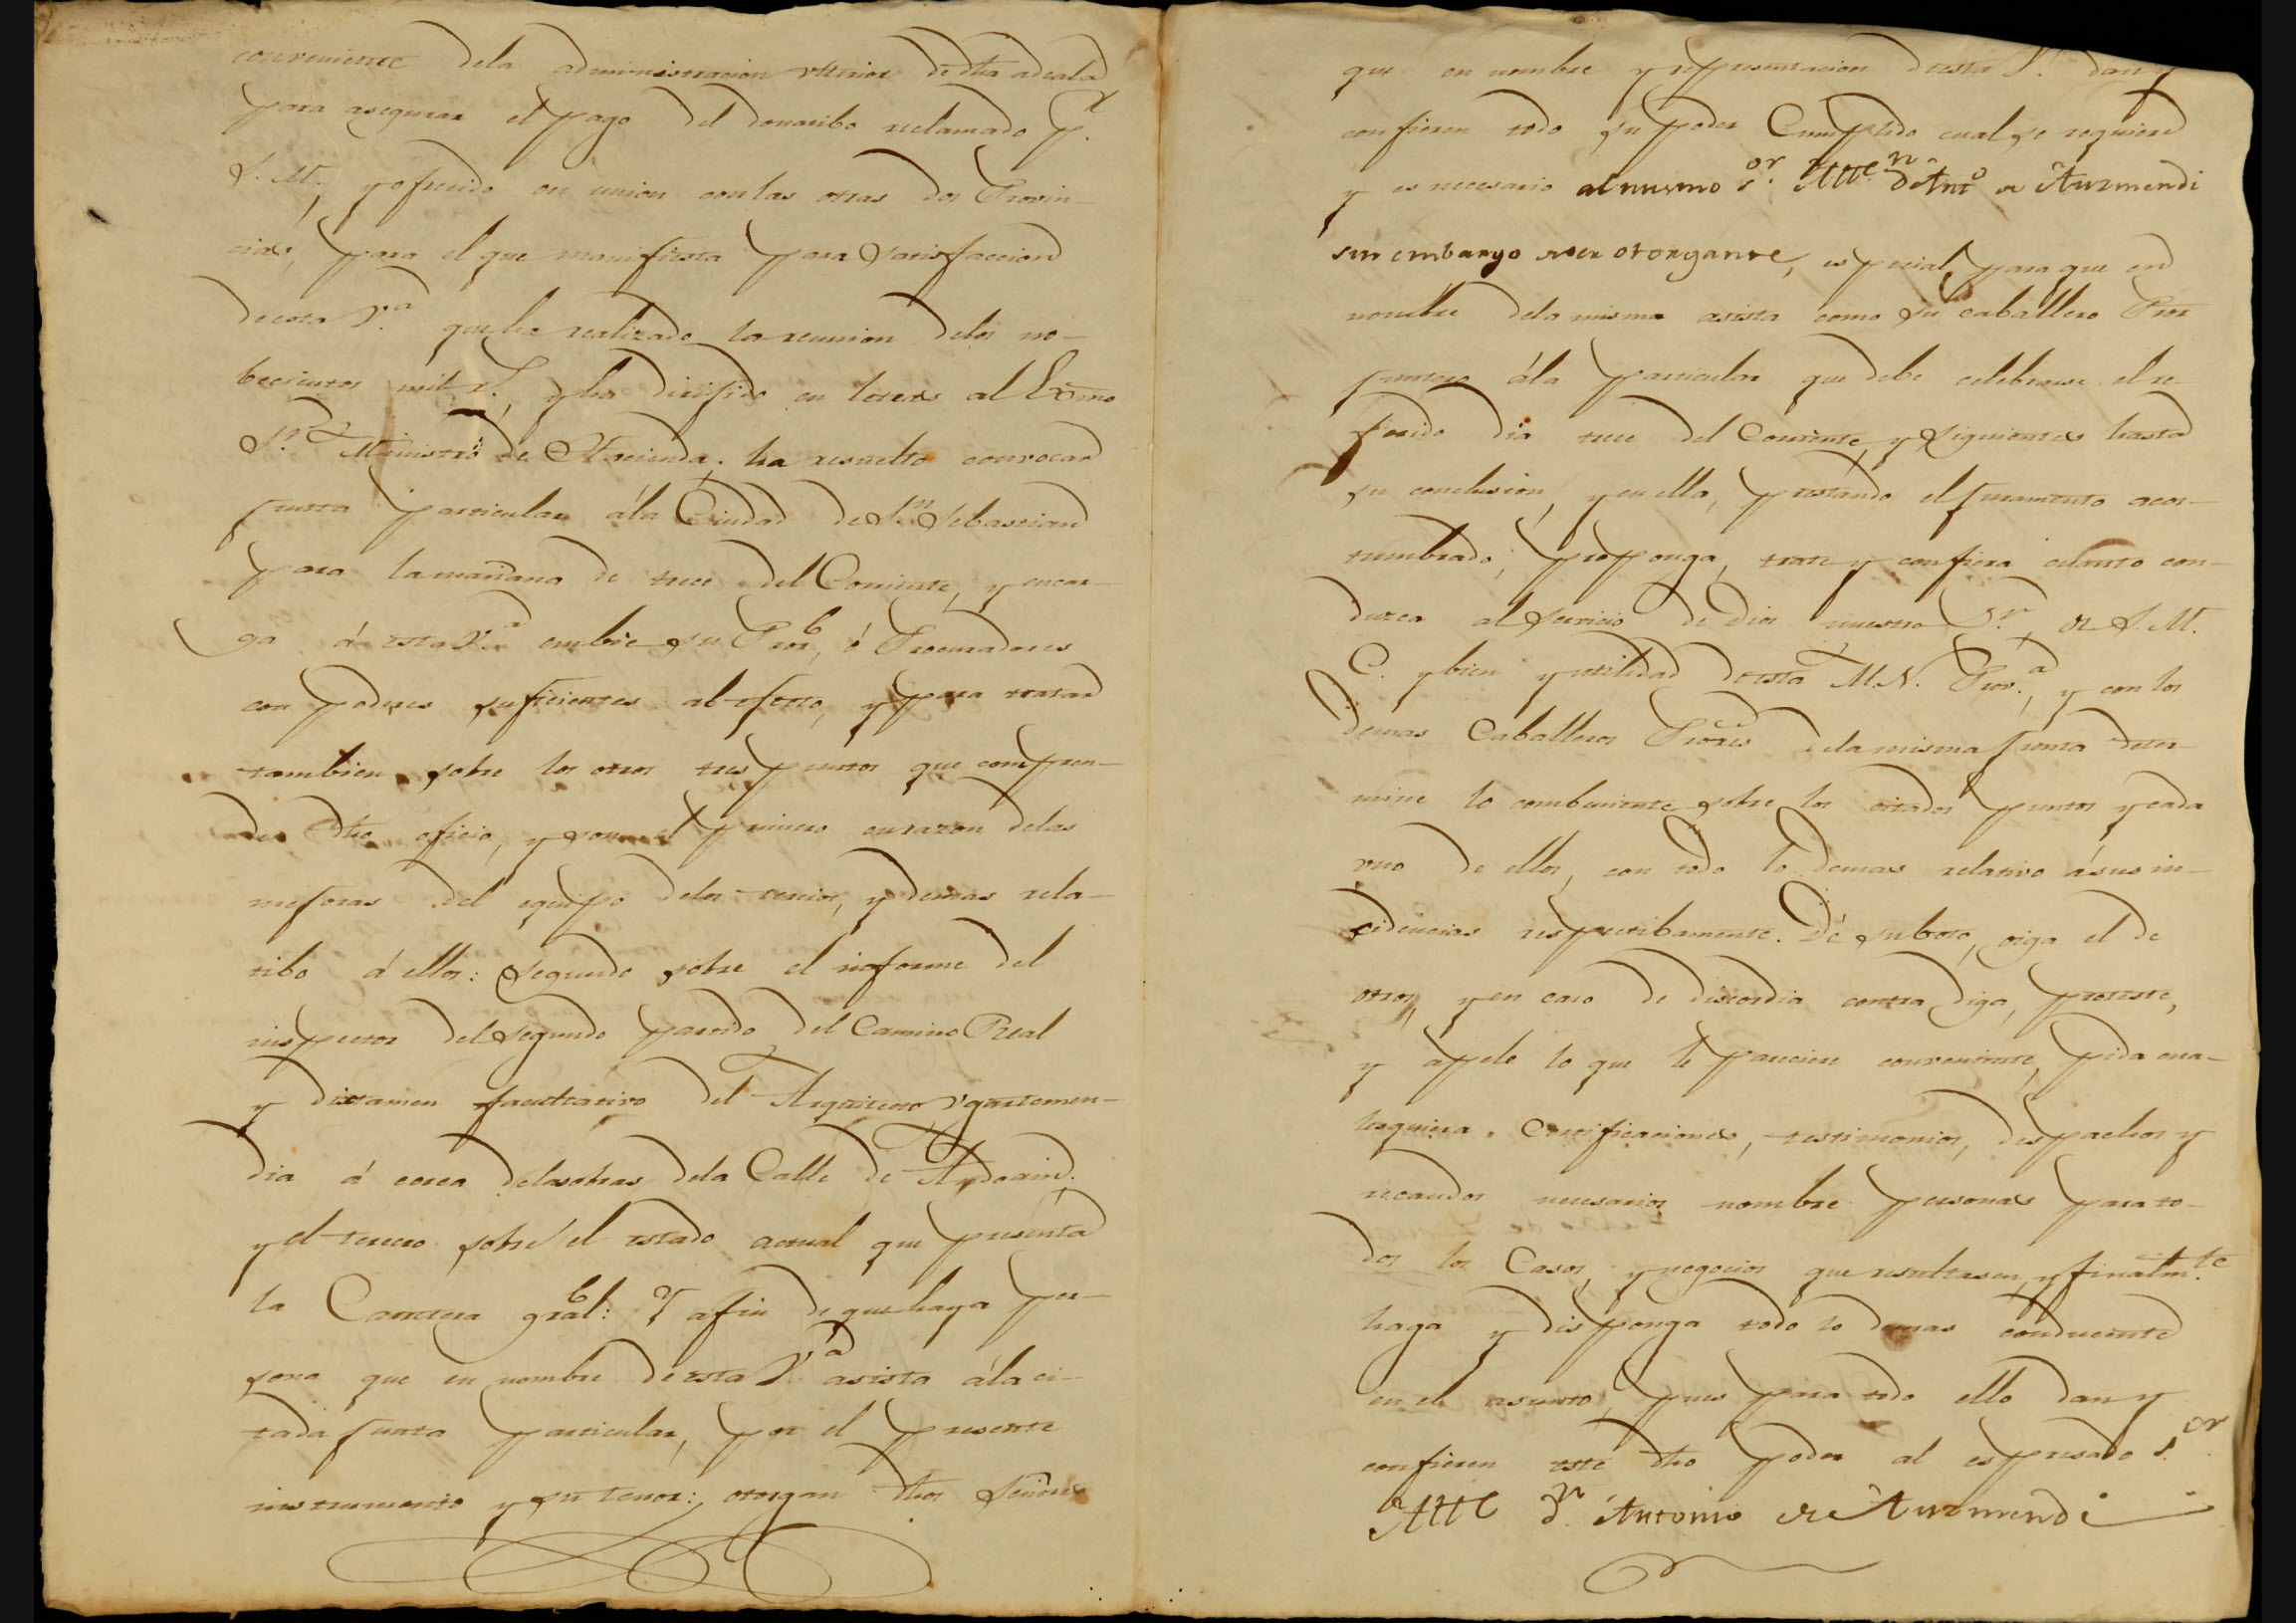 conveniente dela administracion ulterior de dha adeala
para asegurar el pago del donatibo reclamado p.r
S. M., y ofrecido en union con las otras dos Provin-
cias, para el que manifiesta para satisfaccion
de esta V.a que ha realizado la reunion delos no-
becientos mil r.s, y ha dirijido en letras al Exmo
S.r Ministro de Hacienda; ha resuelto convocar
junta particular ála Ciudad de S.n Sebastian
para la mañana de trece del Corriente, y encar-
ga á esta V.a embie su Pror, ó Procuradores
con poderes suficientes al efecto, y para tratar
tambien sobre los otros tres puntos que compren-
de dho oficio, y son el primero en razon delas
mejoras del equipo delos tercios, y demas rela-
tibo á ellos: Segundo sobre el informe del
inspector del segundo partido del Camino Real
y dictamen facultativo del Arquitecto Ugartemen-
dia á cerca delas obras dela Calle de Andoain;
y el tercero sobre el estado actual que presenta
la Carretera gral: Y afin de que haya per-
sona que en nombre de esta V.a asista ála ci-
tada junta particular, por el presente
instrumento y su tenor: otorgan dhos Señores
que en nombre y representacion de esta V.a dan y
confieren todo su poder Cumplido cual se requiere
y es necesario al mismo S.or Alc.e D.n Ant.o de Aurmendi
sin embargo de ser otorgante, especial, para que en
nombre dela misma asista como su caballero Pror
Juntero ála particular que debe celebrarse el re-
ferido dia trece del Corriente, y siguientes hasta
su conclusion, y en ella, prestando el juramento acos-
tumbrado, proponga, trate y confiera cuanto con-
duzca al servicio de Dios nuestro S.r, de S. M.
C. y bien y utilidad de esta M. N. Prov.a, y con los
demas Caballeros Prores dela misma junta deter-
mine lo combeniente sobre los citados puntos y cada
uno de ellos, con todo lo demas relativo á sus in-
cidencias respectibamente. Dé su boto, oiga el de
otros, y en caso de discordia contradiga, proteste,
y apele lo que le pareciere conveniente, pida cua-
lesquiera Certificaciones, testimonios, despachos y
recaudos necesarios nombre personas para to-
dos los Casos, y negocios que resultasen, y finalm.te
haga y disponga todo lo demas conducente
en el asunto, pues para todo ello dan y
confieren este dho poder al espresado S.or
Alc.e D.n Antonio de Aurmendi